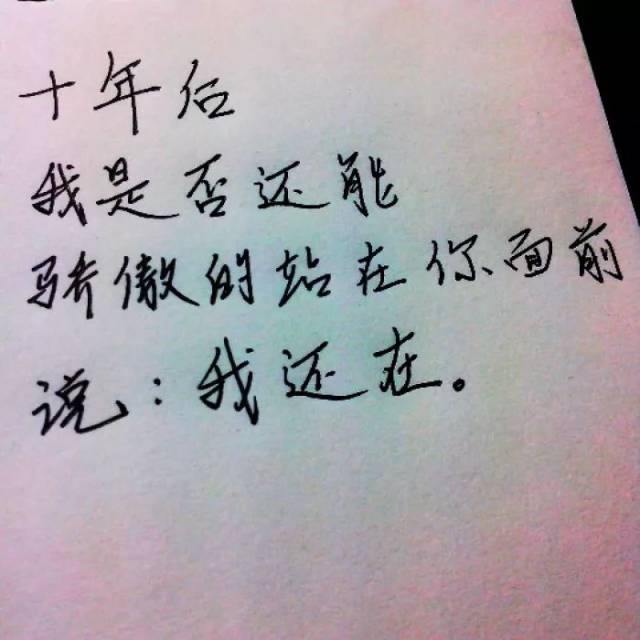 十年后
我是否还能
骄傲的站在你面前
说:我还在。